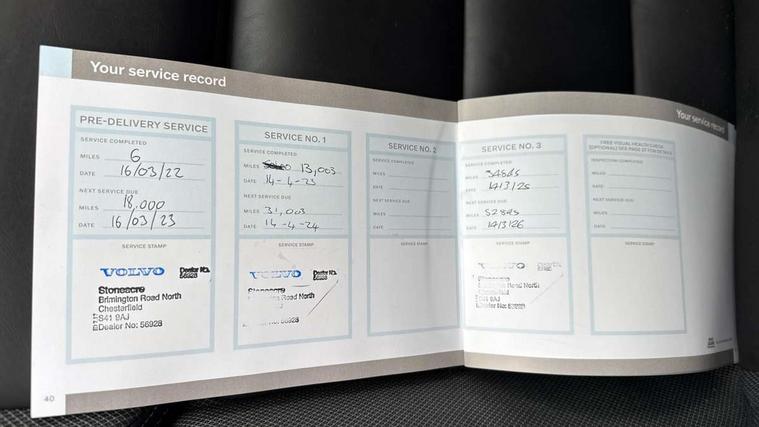 Your service record
Your service record
PRE-DELIVERY SERVICE
SERVICE COMPLETED
MILES 6
DATE 16/03/22
NEXT SERVICE DUE
MILES 18,000
DATE 16/03/23
SERVICE STAMP
VOLVO Dealer No. 56928
Stoneacre
Brimington Road North
Chesterfield
S41 9AJ
Dealer No: 56928
SERVICE NO. 1
SERVICE COMPLETED
MILES 13,003
DATE 14-4-23
NEXT SERVICE DUE
MILES 31,003
DATE 14-4-24
SERVICE STAMP
VOLVO Dealer No. 56928
Stoneacre
Road North
Dealer No: 56928
SERVICE NO. 2
SERVICE COMPLETED
MILES
DATE
NEXT SERVICE DUE
MILES
DATE
SERVICE STAMP
SERVICE NO. 3
SERVICE COMPLETED
MILES
DATE
NEXT SERVICE DUE
MILES
DATE
SERVICE STAMP
Road North
S41 9AJ
Dealer No: 56928
FREE VISUAL HEALTH CHECK
INSPECTION COMPLETED
MILES
DATE
NEXT SERVICE DUE
MILES
DATE
SERVICE STAMP
40